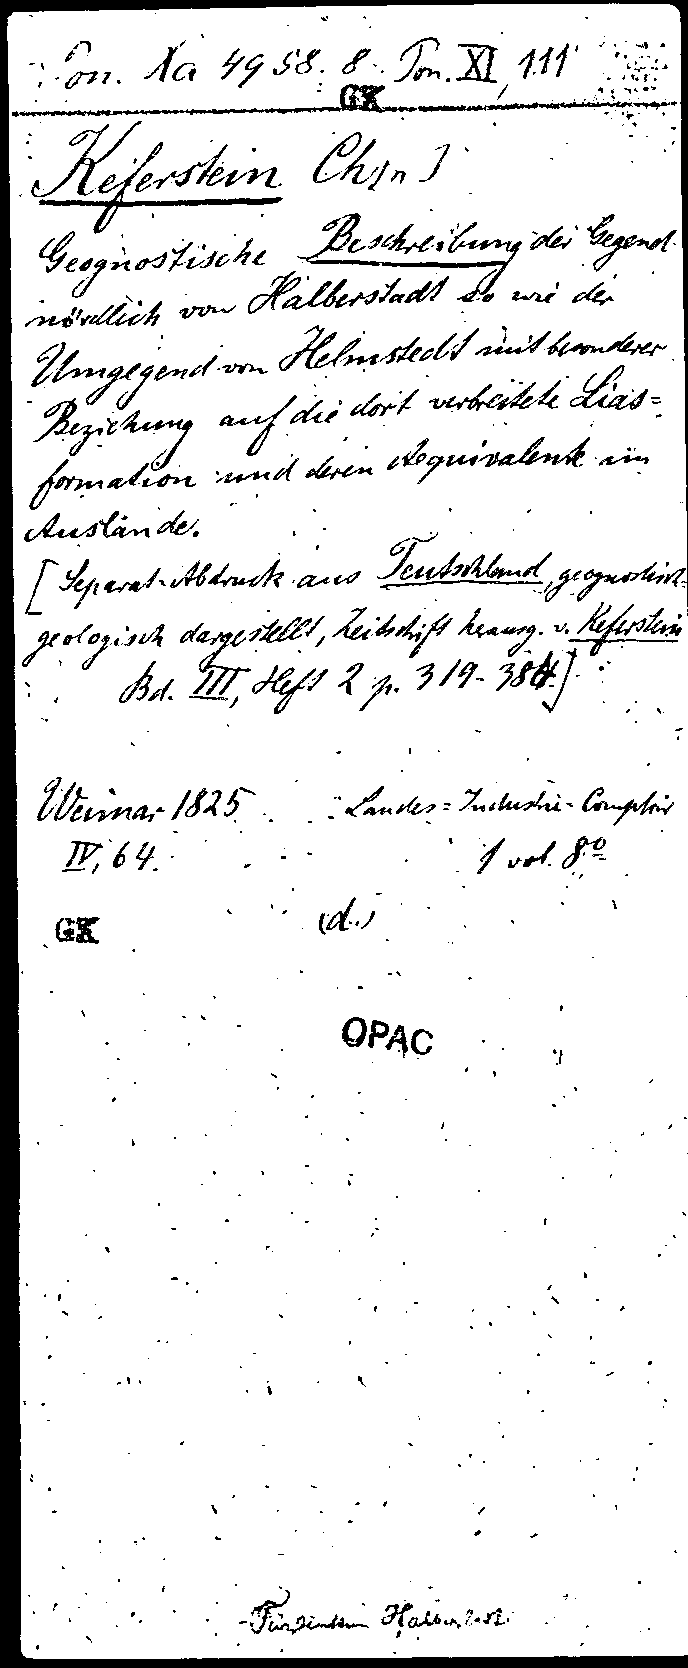 Pon. Xa 4958. 8. Pon. XI, 111
GK
Keferstein Ch[n]
Geognostische Beschreibung der Gegend
nördlich von Halberstadt so wie der
Umgegend von Helmstedt mit besonderer
Beziehung auf die dort verbreitete Lias=
formation und deren Aequivalente im
Auslande.
[Separat-Abdruck aus Teutschland, geognostisch-
geologisch dargestellt, Zeitschrift herausg. v. Keferstein
Bd. III, Heft 2 p. 319-384.]
Weimar 1825. Landes=Industrie-Comptoir
IV, 64. 1 vol. 8º
GK (d.)
OPAC
Fürstentum Halberstadt